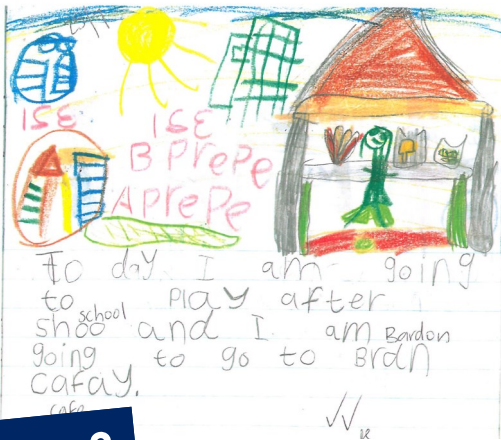 ISE
ISE
B PrePe
APrePe
To day I am going
to Play after
shoo school and I am Bardon
going to go to Bran
cafay.
cafe